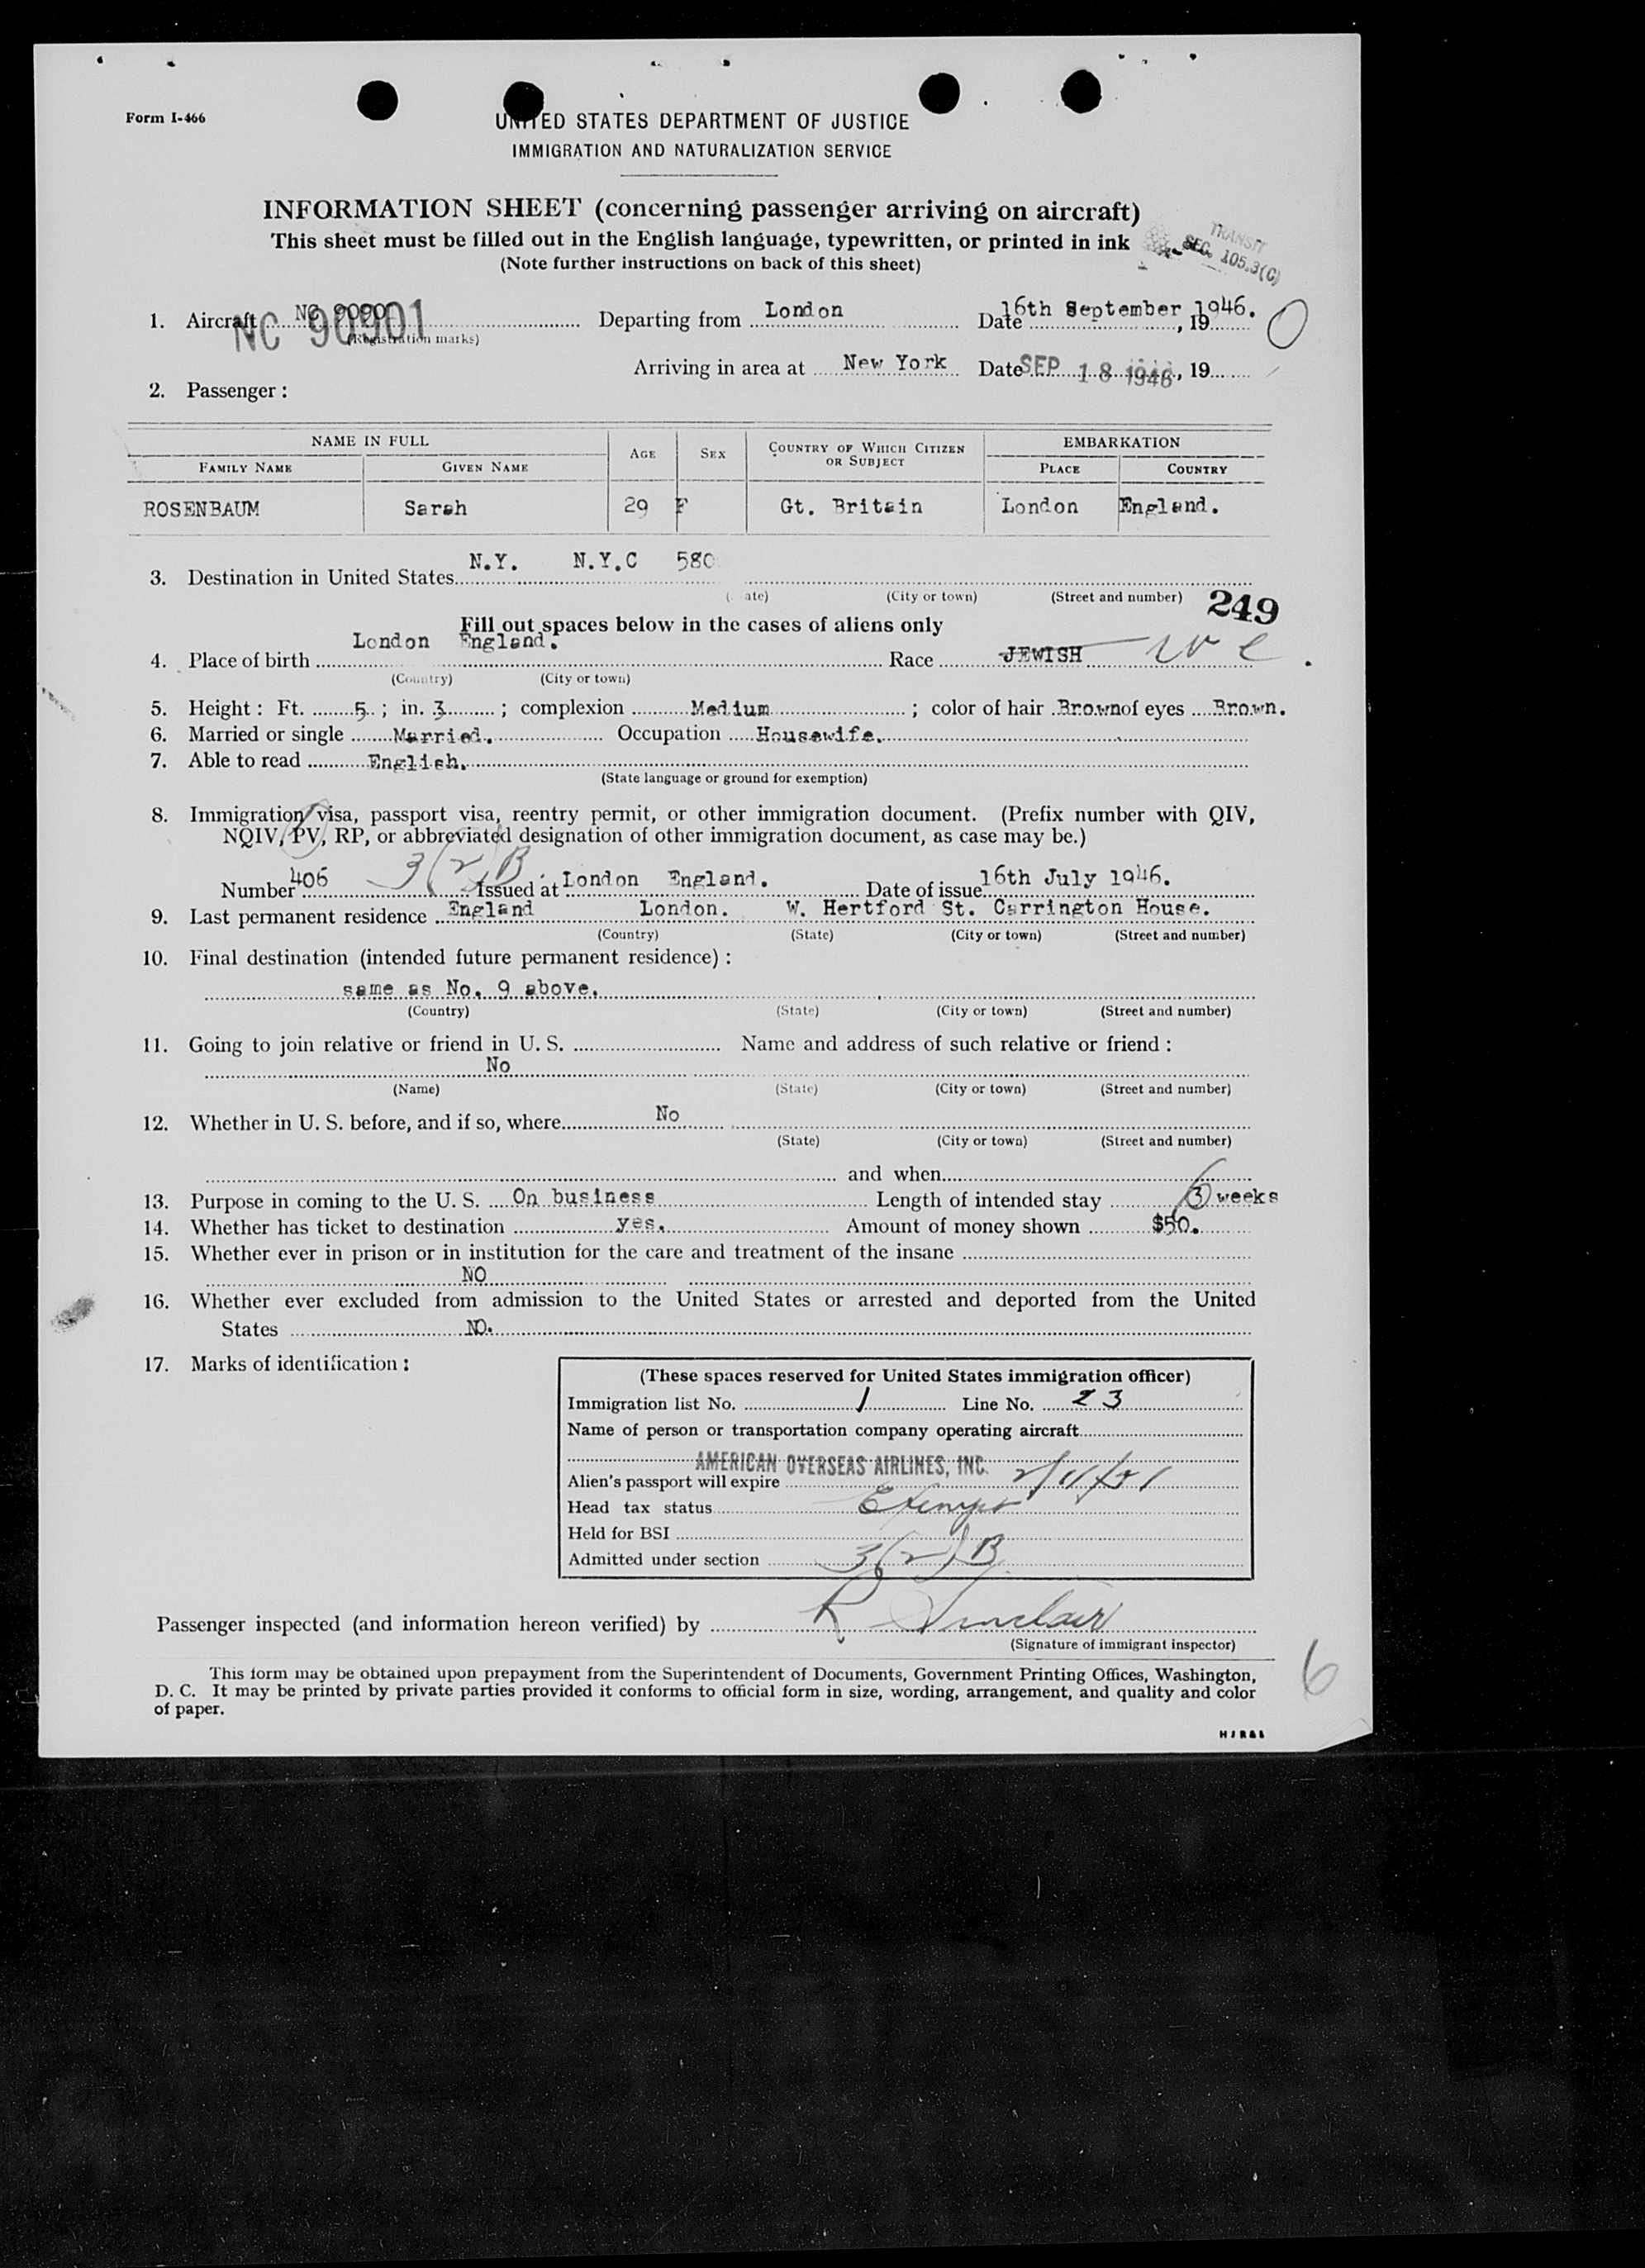 Form I-466
UNITED STATES DEPARTMENT OF JUSTICE
IMMIGRATION AND NATURALIZATION SERVICE
INFORMATION SHEET (concerning passenger arriving on aircraft)
This sheet must be filled out in the English language, typewritten, or printed in ink
(Note further instructions on back of this sheet)
TRANSIT
SEC. 105.3(C)
1. Aircraft NC 90901 Departing from London Date 16th September 1946., 19
NC 90901
(Registration marks)
Arriving in area at New York Date SEP 18 1946, 19
2. Passenger:
NAME IN FULL AGE SEX COUNTRY OF WHICH CITIZEN OR SUBJECT EMBARKATION
FAMILY NAME GIVEN NAME PLACE COUNTRY
ROSENBAUM Sarah 29 F Gt. Britain London England.
3. Destination in United States N.Y. N.Y.C 580
(City or town) (Street and number)
249
Fill out spaces below in the cases of aliens only
4. Place of birth London England. Race JEWISH
(Country) (City or town)
5. Height: Ft. 5; in. 3; complexion Medium; color of hair Brown of eyes Brown.
6. Married or single Married. Occupation Housewife.
7. Able to read English.
(State language or ground for exemption)
8. Immigration visa, passport visa, reentry permit, or other immigration document. (Prefix number with QIV,
NQIV, PV, RP, or abbreviated designation of other immigration document, as case may be.)
3(2)B
Number 406 Issued at London England. Date of issue 16th July 1946.
9. Last permanent residence England London. W. Hertford St. Carrington House.
(Country) (State) (City or town) (Street and number)
10. Final destination (intended future permanent residence):
same as No. 9 above.
(Country) (State) (City or town) (Street and number)
11. Going to join relative or friend in U. S. Name and address of such relative or friend:
No
(Name) (State) (City or town) (Street and number)
12. Whether in U. S. before, and if so, where No
(State) (City or town) (Street and number)
and when
13. Purpose in coming to the U. S. On business Length of intended stay 3 weeks
14. Whether has ticket to destination yes. Amount of money shown $50.
15. Whether ever in prison or in institution for the care and treatment of the insane
NO
16. Whether ever excluded from admission to the United States or arrested and deported from the United
States NO.
17. Marks of identification:
(These spaces reserved for United States immigration officer)
Immigration list No. 1 Line No. 23
Name of person or transportation company operating aircraft
AMERICAN OVERSEAS AIRLINES, INC.
Alien's passport will expire 2/11/51
Head tax status Exempt
Held for BSI
Admitted under section 3(2)B
Passenger inspected (and information hereon verified) by R Sinclair
(Signature of immigrant inspector)
6
This form may be obtained upon prepayment from the Superintendent of Documents, Government Printing Offices, Washington,
D. C. It may be printed by private parties provided it conforms to official form in size, wording, arrangement, and quality and color
of paper.